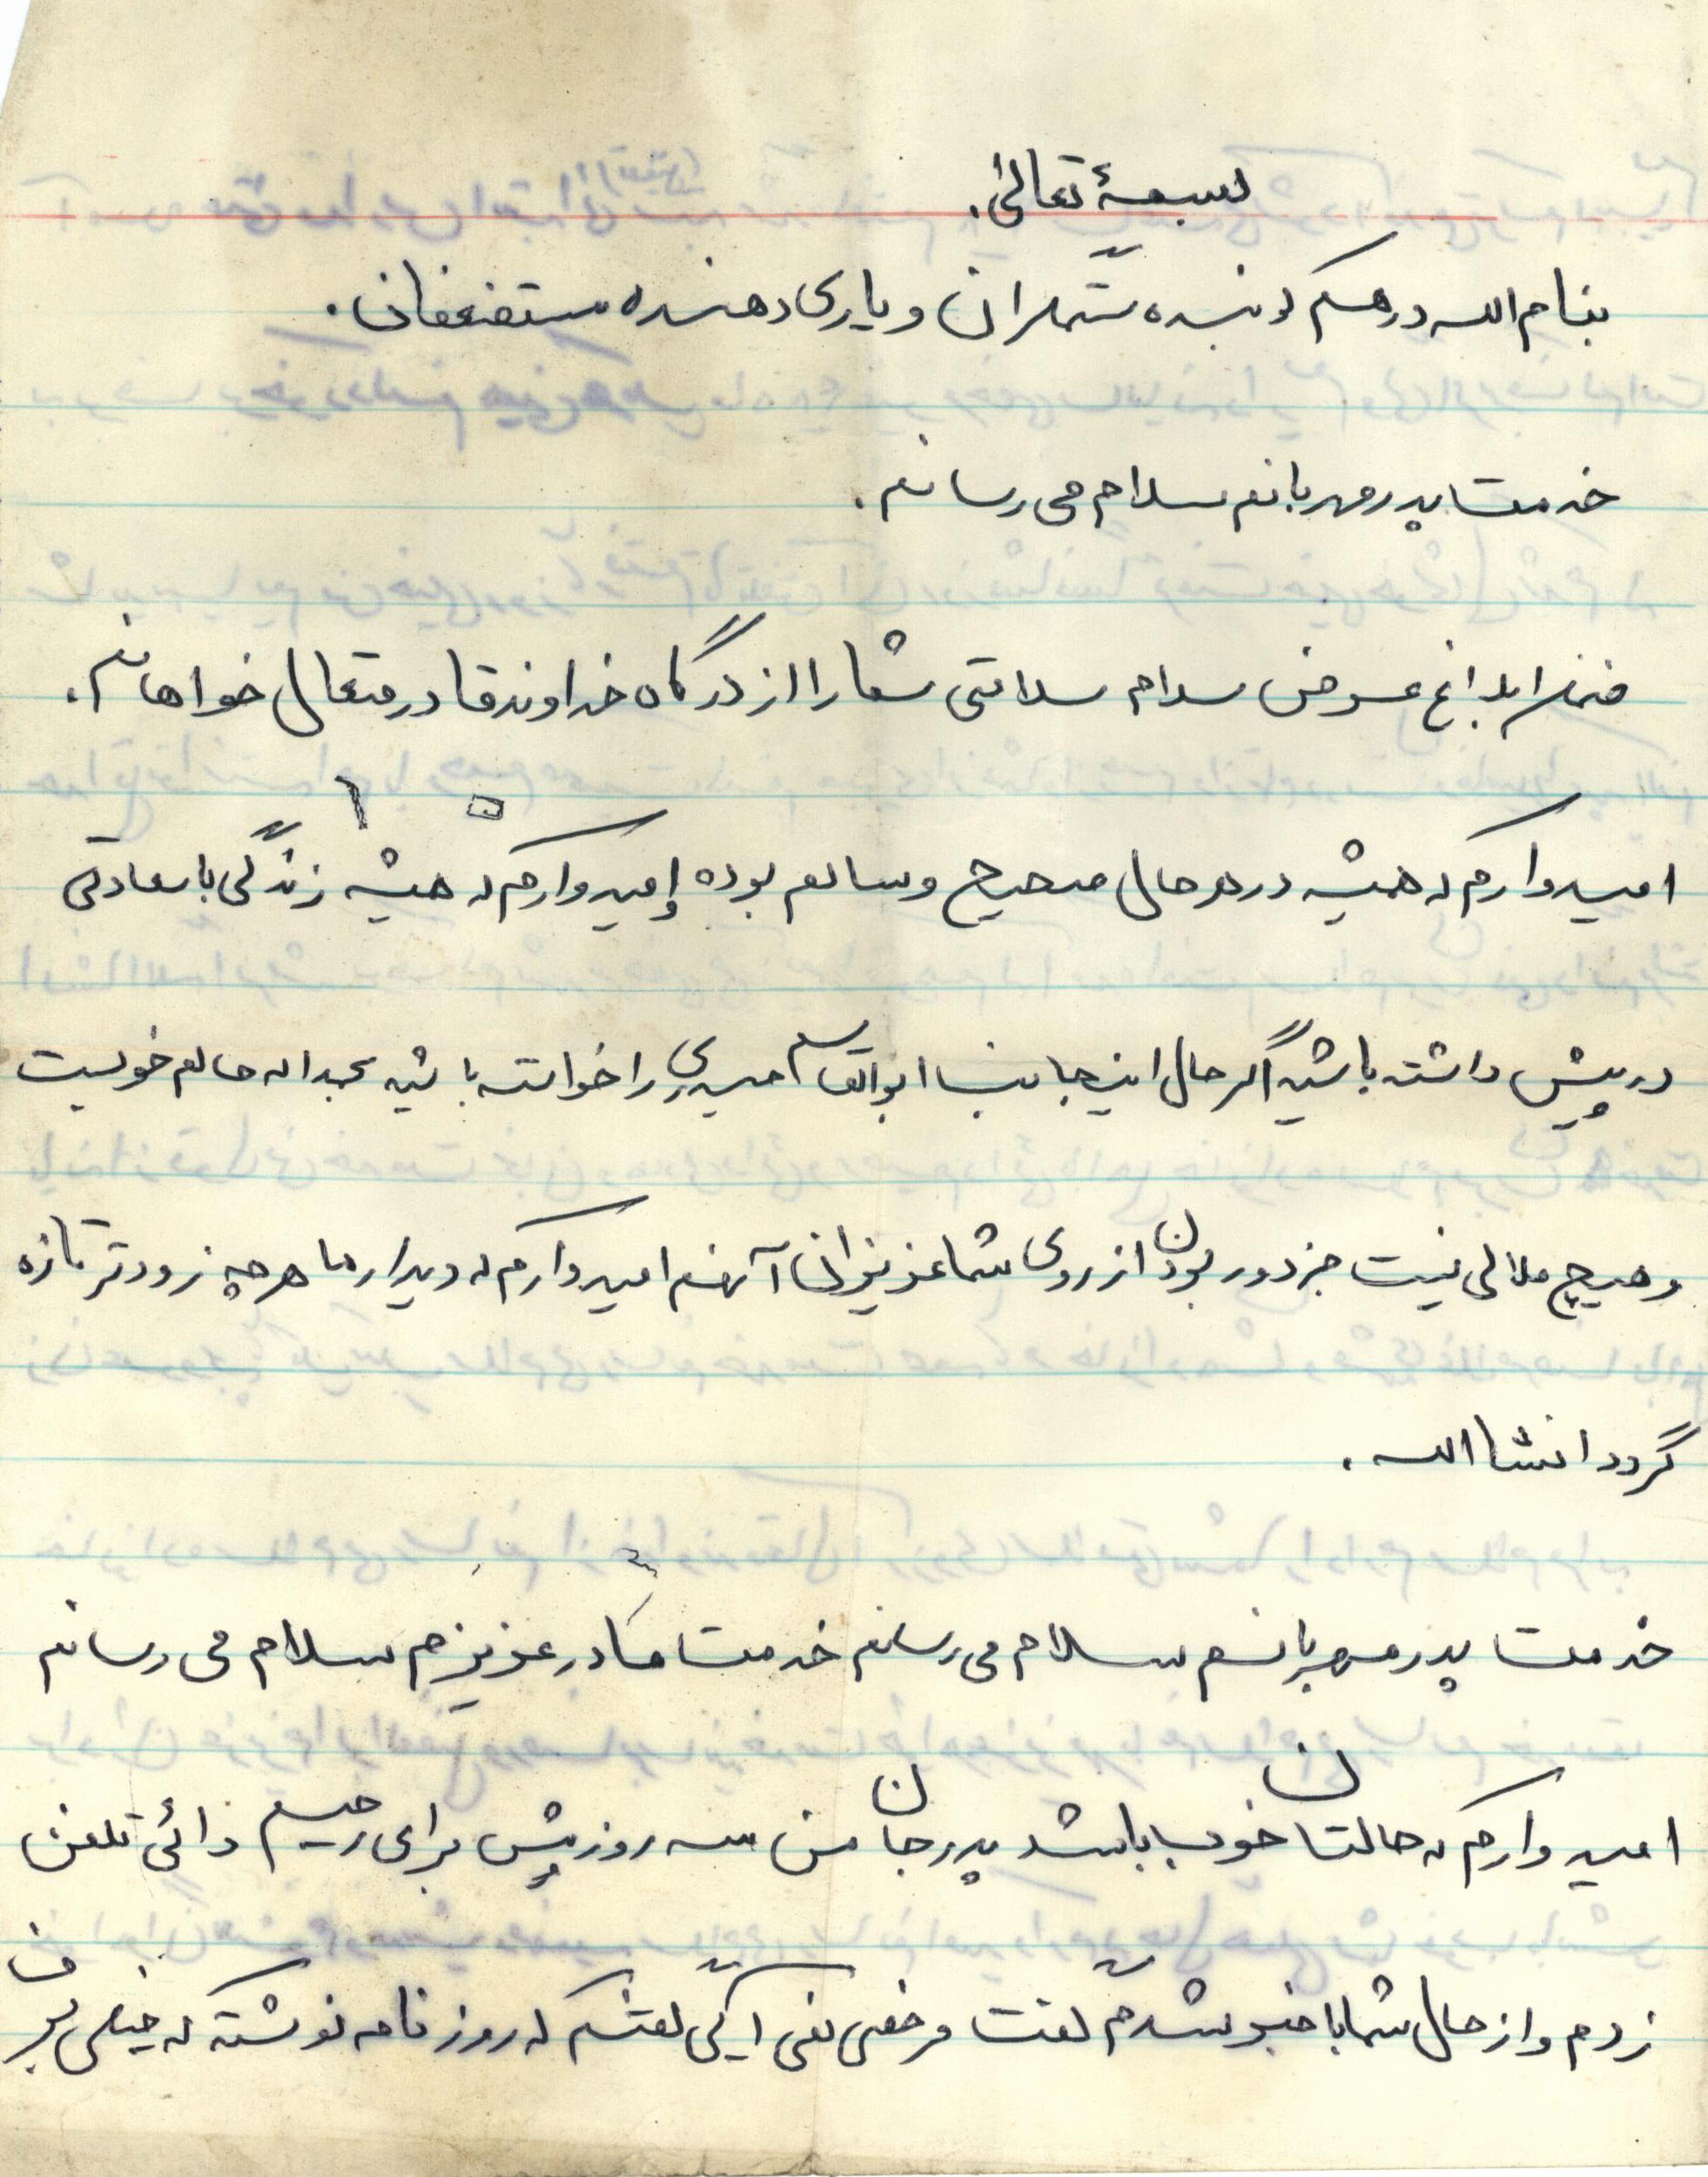 بسمهٔ تعالی.
بنام الله درهم کوبنده ستمگران و یاری دهنده مستضعفان.
خدمت پدر مهربانم سلام می رسانم.
ضمن ابلاغ عرض سلام سلامتی شما را از درگاه خداوند قادر متعال خواهانم.
امیدوارم که همیشه در هر حال صحیح و سالم بوده و امیدوارم که همیشه زندگی با سعادتی
در پیش داشته باشید اگر حال اینجانب ابوالقاسم را خواسته باشید بحمداله حالم خوبست
و هیچ ملالی نیست جز دور بودن از روی شما عزیزان آنهم امیدوارم که دیدارها هر چه زودتر تازه
گردد انشاالله.
خدمت پدر مهربانم سلام می رسانم خدمت مادر عزیزم سلام می رسانم
امیدوارم که حالتان خوب باشد پدر جان من سه روز پیش برای رحیم دائی تلفن
زدم و از حال شما با خبر شدم گفت مرخصی نمی آیی گفتم که روزنامه نوشته که خیلی برف